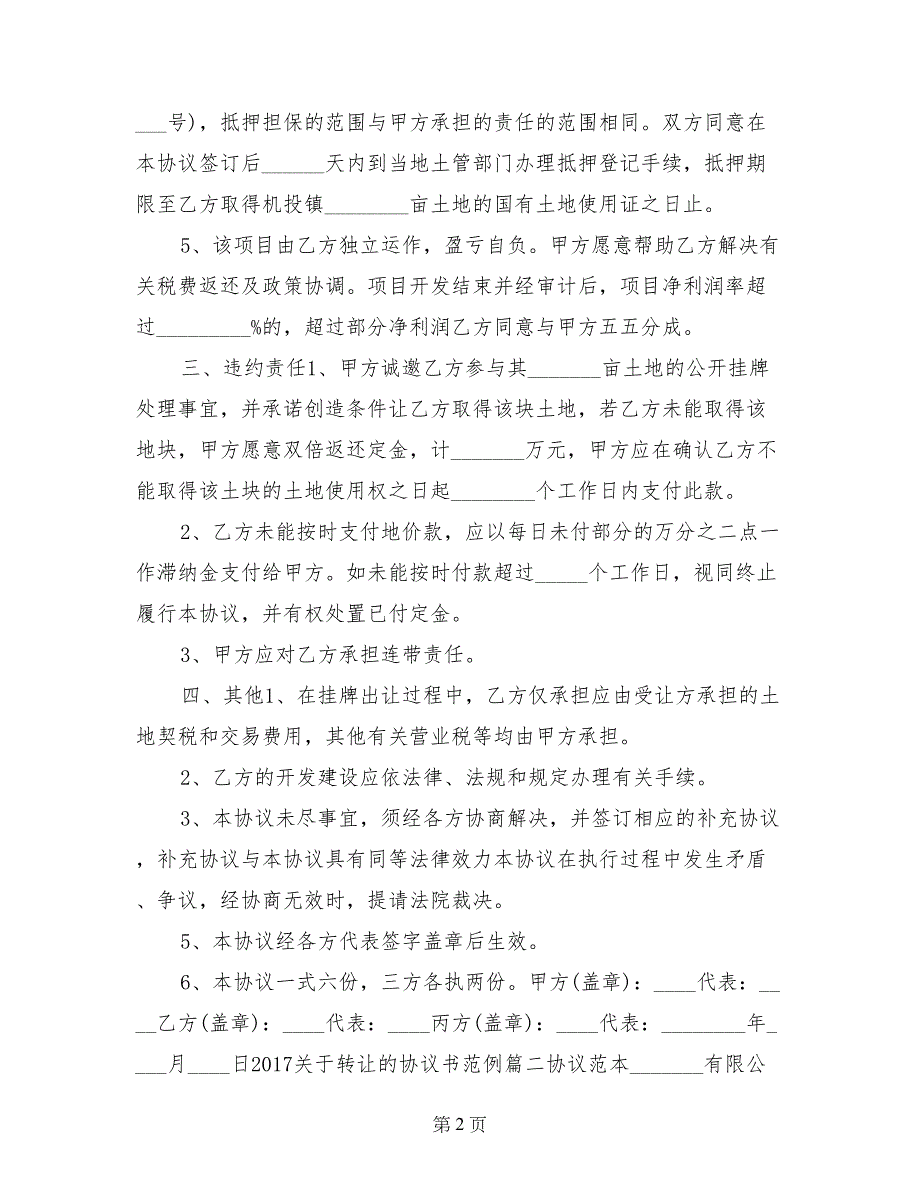 ___号)，抵押担保的范围与甲方承担的责任的范围相同。双方同意在
本协议签订后______天内到当地土管部门办理抵押登记手续，抵押期
限至乙方取得机投镇________亩土地的国有土地使用证之日止。
5、该项目由乙方独立运作，盈亏自负。甲方愿意帮助乙方解决有
关税费返还及政策协调。项目开发结束并经审计后，项目净利润率超
过_________%的，超过部分净利润乙方同意与甲方五五分成。
三、违约责任1、甲方诚邀乙方参与其_______亩土地的公开挂牌
处理事宜，并承诺创造条件让乙方取得该块土地，若乙方未能取得该
地块，甲方愿意双倍返还定金，计_______万元，甲方应在确认乙方不
能取得该土块的土地使用权之日起________个工作日内支付此款。
2、乙方未能按时支付地价款，应以每日未付部分的万分之二点一
作滞纳金支付给甲方。如未能按时付款超过_____个工作日，视同终止
履行本协议，并有权处置已付定金。
3、甲方应对乙方承担连带责任。
四、其他1、在挂牌出让过程中，乙方仅承担应由受让方承担的土
地契税和交易费用，其他有关营业税等均由甲方承担。
2、乙方的开发建设应依法律、法规和规定办理有关手续。
3、本协议未尽事宜，须经各方协商解决，并签订相应的补充协议
，补充协议与本协议具有同等法律效力本协议在执行过程中发生矛盾
、争议，经协商无效时，提请法院裁决。
5、本协议经各方代表签字盖章后生效。
6、本协议一式六份，三方各执两份。甲方(盖章)：____代表：__
__乙方(盖章)：____代表：____丙方(盖章)：____代表：________年_
___月____日2017关于转让的协议书范例篇二协议范本_______有限公
第 2 页